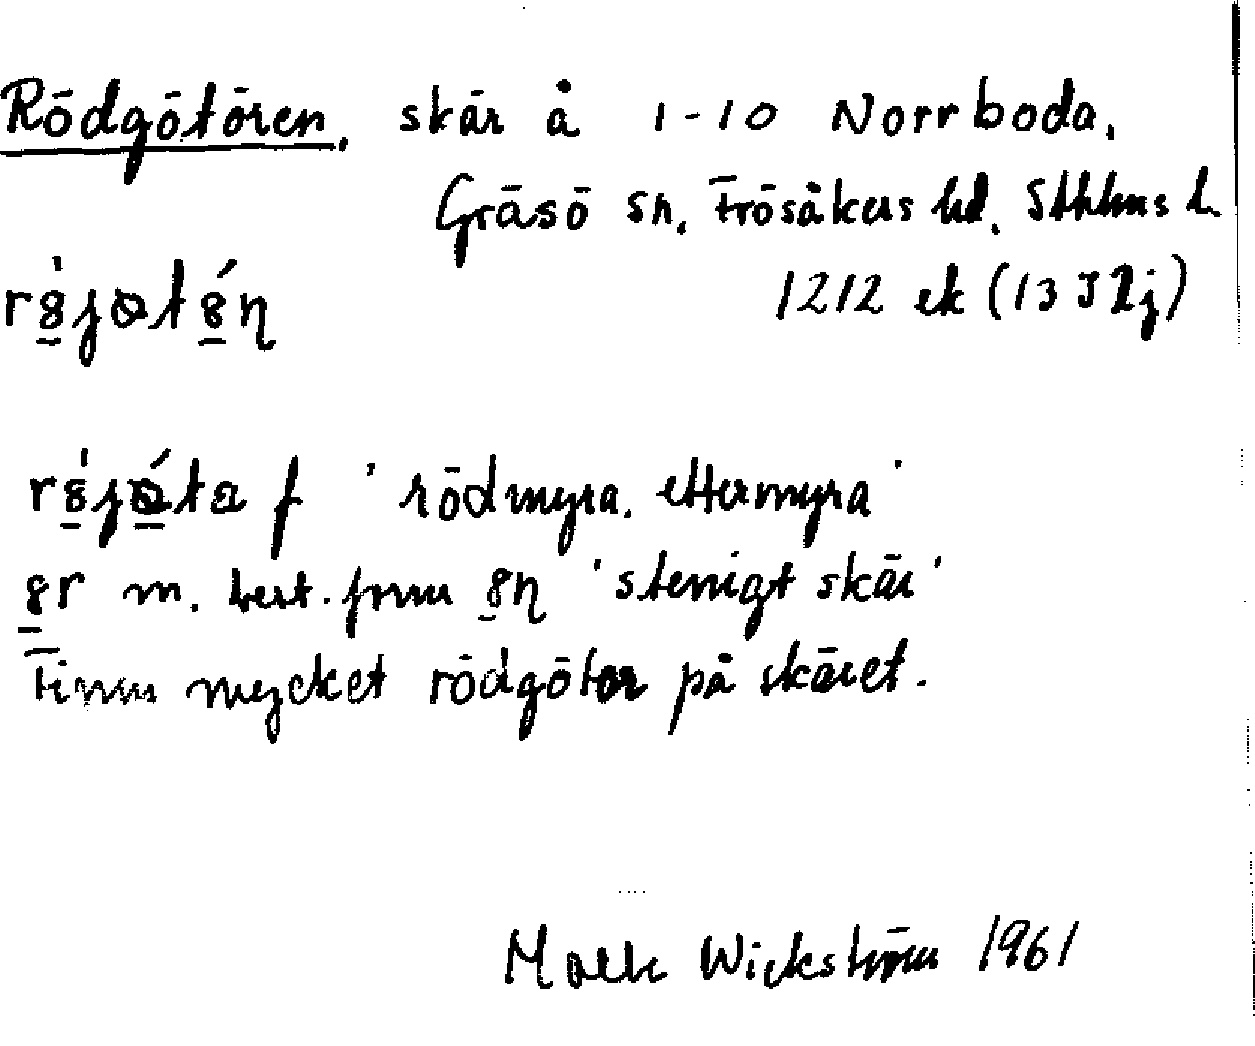 Rödgötören, skär å 1-10 Norrboda,
Gräsö sn, Frösåkers hd, Sthlms l.
1212 ek (13 I 2j)
f 'rödmyra, ettermyra'
m. best. form 'stenigt skär'
Finns mycket rödgötor på skäret.
Wickström 1961